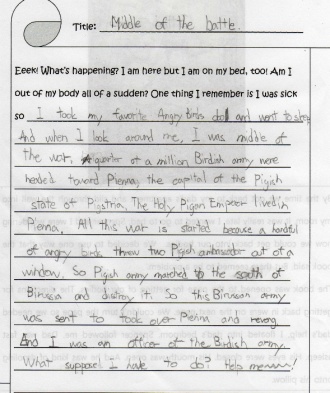 Title: Middle of the battle.
Eeek! What's happening? I am here but I am on my bed, too! Am I
out of my body all of a sudden? One thing I remember is I was sick
so I took my favorite Angry birds doll and went to sleep
And when I look around me, I was middle of
the war. A quarter of a million Birdish army were
headed toward Pienna, the capital of the Pigish
state of Pigstria. The Holy Pigan Emperor lived in
Pienna. All this war is started because a handful
of angry birds threw two Pigish ambassador out of a
window. So Pigish army marched to the south of
Birussia and distroy it. So this Birussan army
was sent to took over Pienna and reveng
And I was an officer of the Birdish army.
What suppose I have to do? Help me~~~!